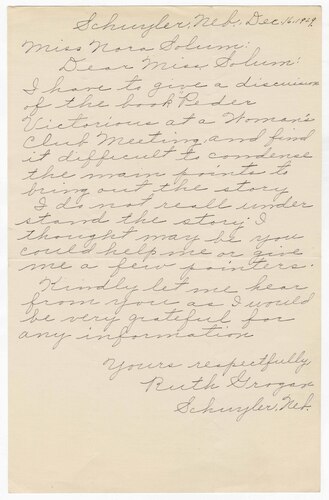 Schuyler, Neb., Dec. 16, 1929.
Miss Nora Solum:
Dear Miss Solum:
I have to give a discussion
of the book Peder
Victorious at a Woman's
Club Meeting, and find
it difficult to condense
the main points to
bring out the story
I do not reall under
stand the story; I
thought may be you
could help me or give
me a few pointers.
Kindly let me hear
from you as I would
be very grateful for
any information
Yours respectfully
Ruth Grogan
Schuyler, Neb.